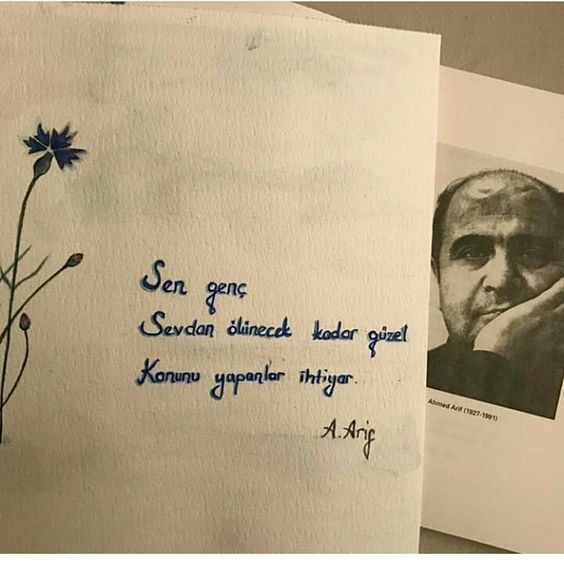 Sen genç
Sevdan ölünecek kadar güzel
Kanunu yapanlar ihtiyar.
A. Arif
Ahmed Arif (1927-1991)